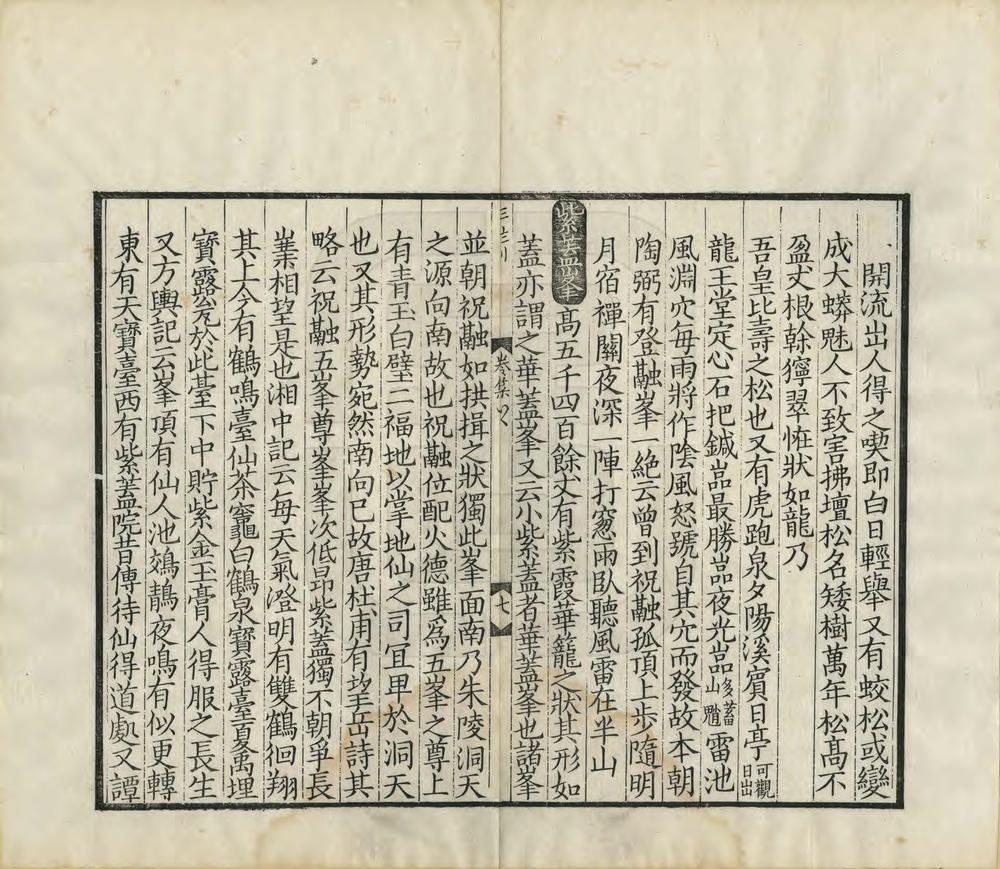 開流出人得之喫即白日輕舉又有蛟松或變
成大蟒魅人不致害拂壇松名矮樹萬年松髙不
盈丈根幹獰翠恠狀如龍乃
吾皇比壽之松也又有虎跑泉夕陽溪賓日亭可觀日出
龍王堂定心石把鍼嵓最勝嵓夜光嵓多蓄山魈雷池
風淵穴每雨將作隂風怒號自其穴而發故本朝
陶弼有登融峯一絶云曾到祝融孤頂上步隨明
月宿禪關夜深一陣打窻雨臥聽風雷在半山
紫蓋峯髙五千四百餘丈有紫霞華籠之狀其形如
蓋亦謂之華蓋峯又云小紫蓋者華蓋峯也諸峯
卷集
七
並朝祝融如拱揖之狀獨此峯面南乃朱陵洞天
之源向南故也祝融位配火德雖爲五峯之尊上
有青玉白壁二福地以掌地仙之司冝畢於洞天
也又其形勢宛然南向已故唐杜甫有望岳詩其
略云祝融五峯尊峯峯次低昂紫蓋獨不朝爭長
嶪相望是也湘中記云每天氣澄明有雙鶴徊翔
其上今有鶴鳴臺仙茶竈白鶴泉寶露臺夏禹埋
寶露瓮於此臺下中貯紫金玉膏人得服之長生
又方輿記云峯頂有仙人池鵁鶄夜鳴有似更轉
東有天寶臺西有紫蓋院昔傅待仙得道處又譚